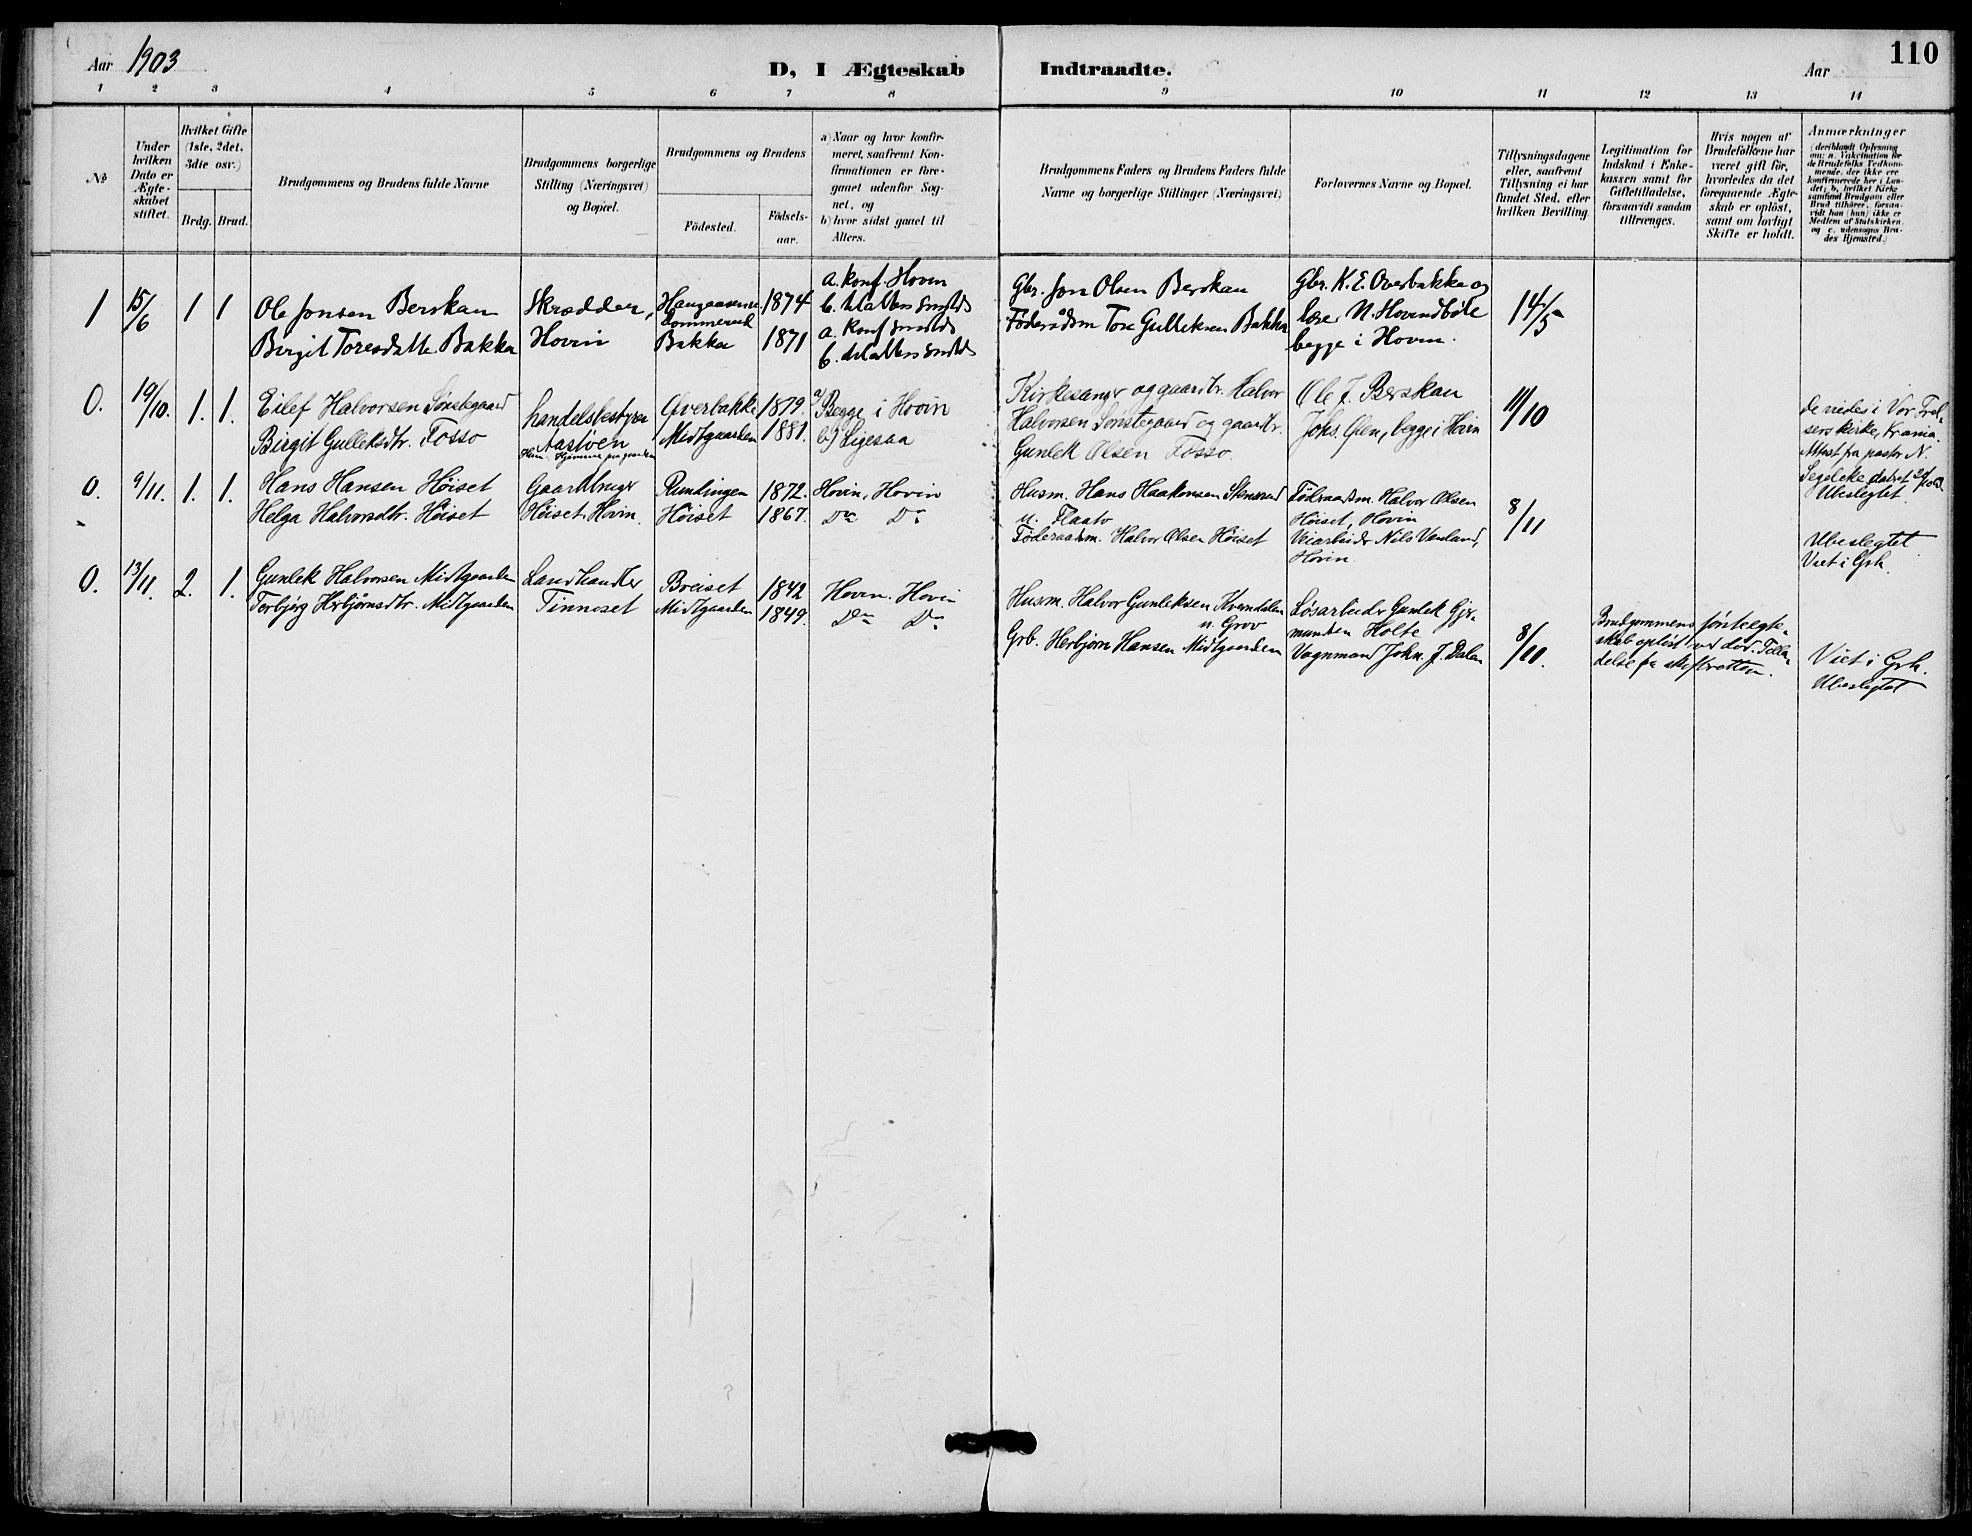 Aar 1903
D, I Ægteskab Indtraadte.
Aar
110
1 2 3 4 5 6 7 8 9 10 11 12 13 14
№
Under
hvilken
Dato er
Ægte-
skabet
stiftet.
Hvilket Gifte
(1ste, 2det,
3die osv.)
Brdg. Brud.
Brudgommens og Brudens fulde Navne
Brudgommens borgerlige
Stilling (Næringsvei)
og Bopæl.
Brudgommens og Brudens
Födested.
Födsels-
aar.
a) Naar og hvor konfir-
meret, saafremt Kon-
firmationen er fore-
gaaet udenfor Sog-
net, og
b) hvor sidst gaaet til
Alters.
Brudgommens Faders og Brudens Faders fulde
Navne og borgerlige Stillinger (Næringsvei)
Forlovernes Navne og Bopæl.
Tillysningsdagene
eller, saafremt
Tillysning ei har
fundet Sted, efter
hvilken Bevilling
Legitimation for
Indskud i Enke-
kassen samt for
Giftetilladelse,
forsaavidt saadan
tiltrænges.
Hvis nogen af
Brudefolkene har
været gift för,
hvorledes da det
foregaaende Ægte-
skab er oplöst,
samt om lovligt
Skifte er holdt.
Anmærkninger
(deriblandt Oplysning
om: a. Vakcination for
de Brudefolks Vedkom-
mende, der ikke ere
konfirmerede her i Lan-
det; b. hvilket Kirke-
samfund Brudgom eller
Brud tilhörer, forsaa-
vidt han (hun) ikke er
Medlem af Statskirken,
og c. udensogns Bru-
des Hjemsted.)
1 15/6 1 1
Ole Jonsen Berskan
Birgit Toresdatter Bakka
Skrædder,
Hovin
Haugaaserne
Bommerud
Bakka
1874
1871
a. Konf. Hovin
b.
a. Konf
b.
Gbr. Jon Olsen Berskan
Föderådsm Tore Gulleksen Bakka
Gbr. K. E. Overbakka og
lær. N. Hovindböle
begge i Hovin.
14/5
0. 19/10. 1. 1.
Eilef Halvorsen Sønstegaard
Birgit Gulleksdtr. Fosso
Handelsbestyrer
Aastøen
Øverbakke
Midtgaarden
1879.
1881.
a) Begge i Hovin
b) Ligesaa
Kirkesanger og gaardbr. Halvor
Halvorsen Sønstegaard og gaardbr.
Gunlek Olsen Fosso.
Ole J. Berskan
Johs. Øien, begge i Hovin
11/10
De viedes i Vor Frel-
sers kirke, Krania.
Attest fra pastor N.
Segelcke datret
Ubeslegtet.
0. 9/11. 1. 1.
Hans Hansen Höiset
Helga Halvorsdtr. Höiset
Gaardbruger
Höiset, Hovin.
Rundingen
Höiset
1872.
1867.
Hovin, Hovin
Do Do
Husm. Hans Haakonsen Stenerud
u. Flaato
Föderaadsm. Halvor Olsen Höiset
Föderaadsm. Halvor Olsen
Höiset, Hovin
Veiarbeider Nils Venland,
Hovin.
8/11
Ubeslegtet
Viet i Grh.
0. 13/11. 2. 1.
Gunlek Halvorsen Midtgaarden
Torbjörg Herbjörnsdtr. Midtgaarden
Landhandler
Tinnoset
Breiset
Midtgaarden
1842
1849.
Hovin. Hovin
Do Do
Husm. Halvor Gunleksen Kverndalen
u. Grov
Grb. Herbjörn Hansen Midtgaarden
Løsarbeider Gunlek Gjer-
mundsen Holte
Vognmand John. J. Dalen
8/11.
Brudgommens første ægte-
skab opløst ved död. Tilla-
delse fra skifteretten.
Viet i Grh.
Ubeslegtet